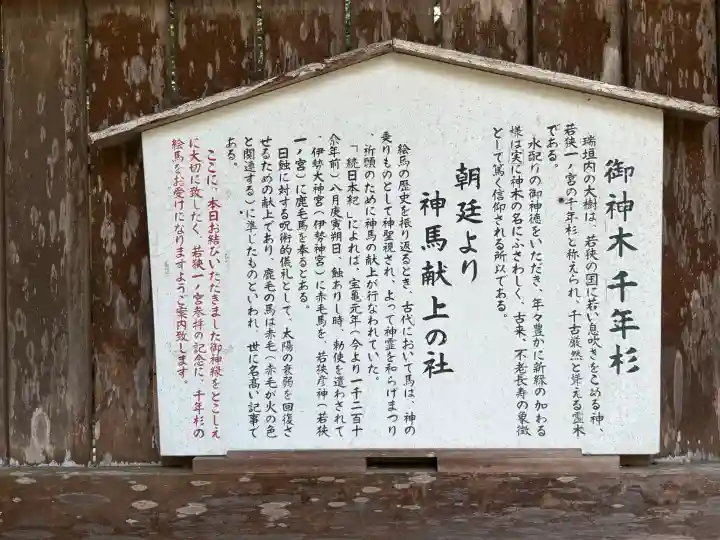 御神木千年杉
瑞垣内の大樹は、若狭の国に若い息吹きをこめる神、
若狭一ノ宮の千年杉と称えられ、千古厳然と聳える霊木
である。
水配りの御神徳をいただき、年々豊かに新緑の加わる
様は実に神木の名にふさわしく、古来、不老長寿の象徴
として篤く信仰される所以である。
朝廷より
神馬献上の社
絵馬の歴史を振り返るとき、古代において馬は、神の
乗りものとして神聖視され、よって神霊を和らげまつり
、祈願のために神馬の献上が行なわれていた。
「続日本紀」によれば、宝亀元年（今より一千二百十
余年前）八月庚寅朔日、蝕ありし時、勅使を遣わされて
、伊勢大神宮（伊勢神宮）に赤毛馬を、若狭彦神（若狭
一ノ宮）に鹿毛馬を奉るとある。
日蝕に対する呪術的儀礼として、太陽の衰弱を回復さ
せるための献上であり、鹿毛の馬は赤毛（赤毛が火の色
と関連する）に準じたものといわれ、世に名高い記事で
ある。
ここに、本日お結びいただきました御神縁をとこしえ
に大切に致したく、若狭一ノ宮参拝の記念に、千年杉の
絵馬をお受けになりますようご案内致します。